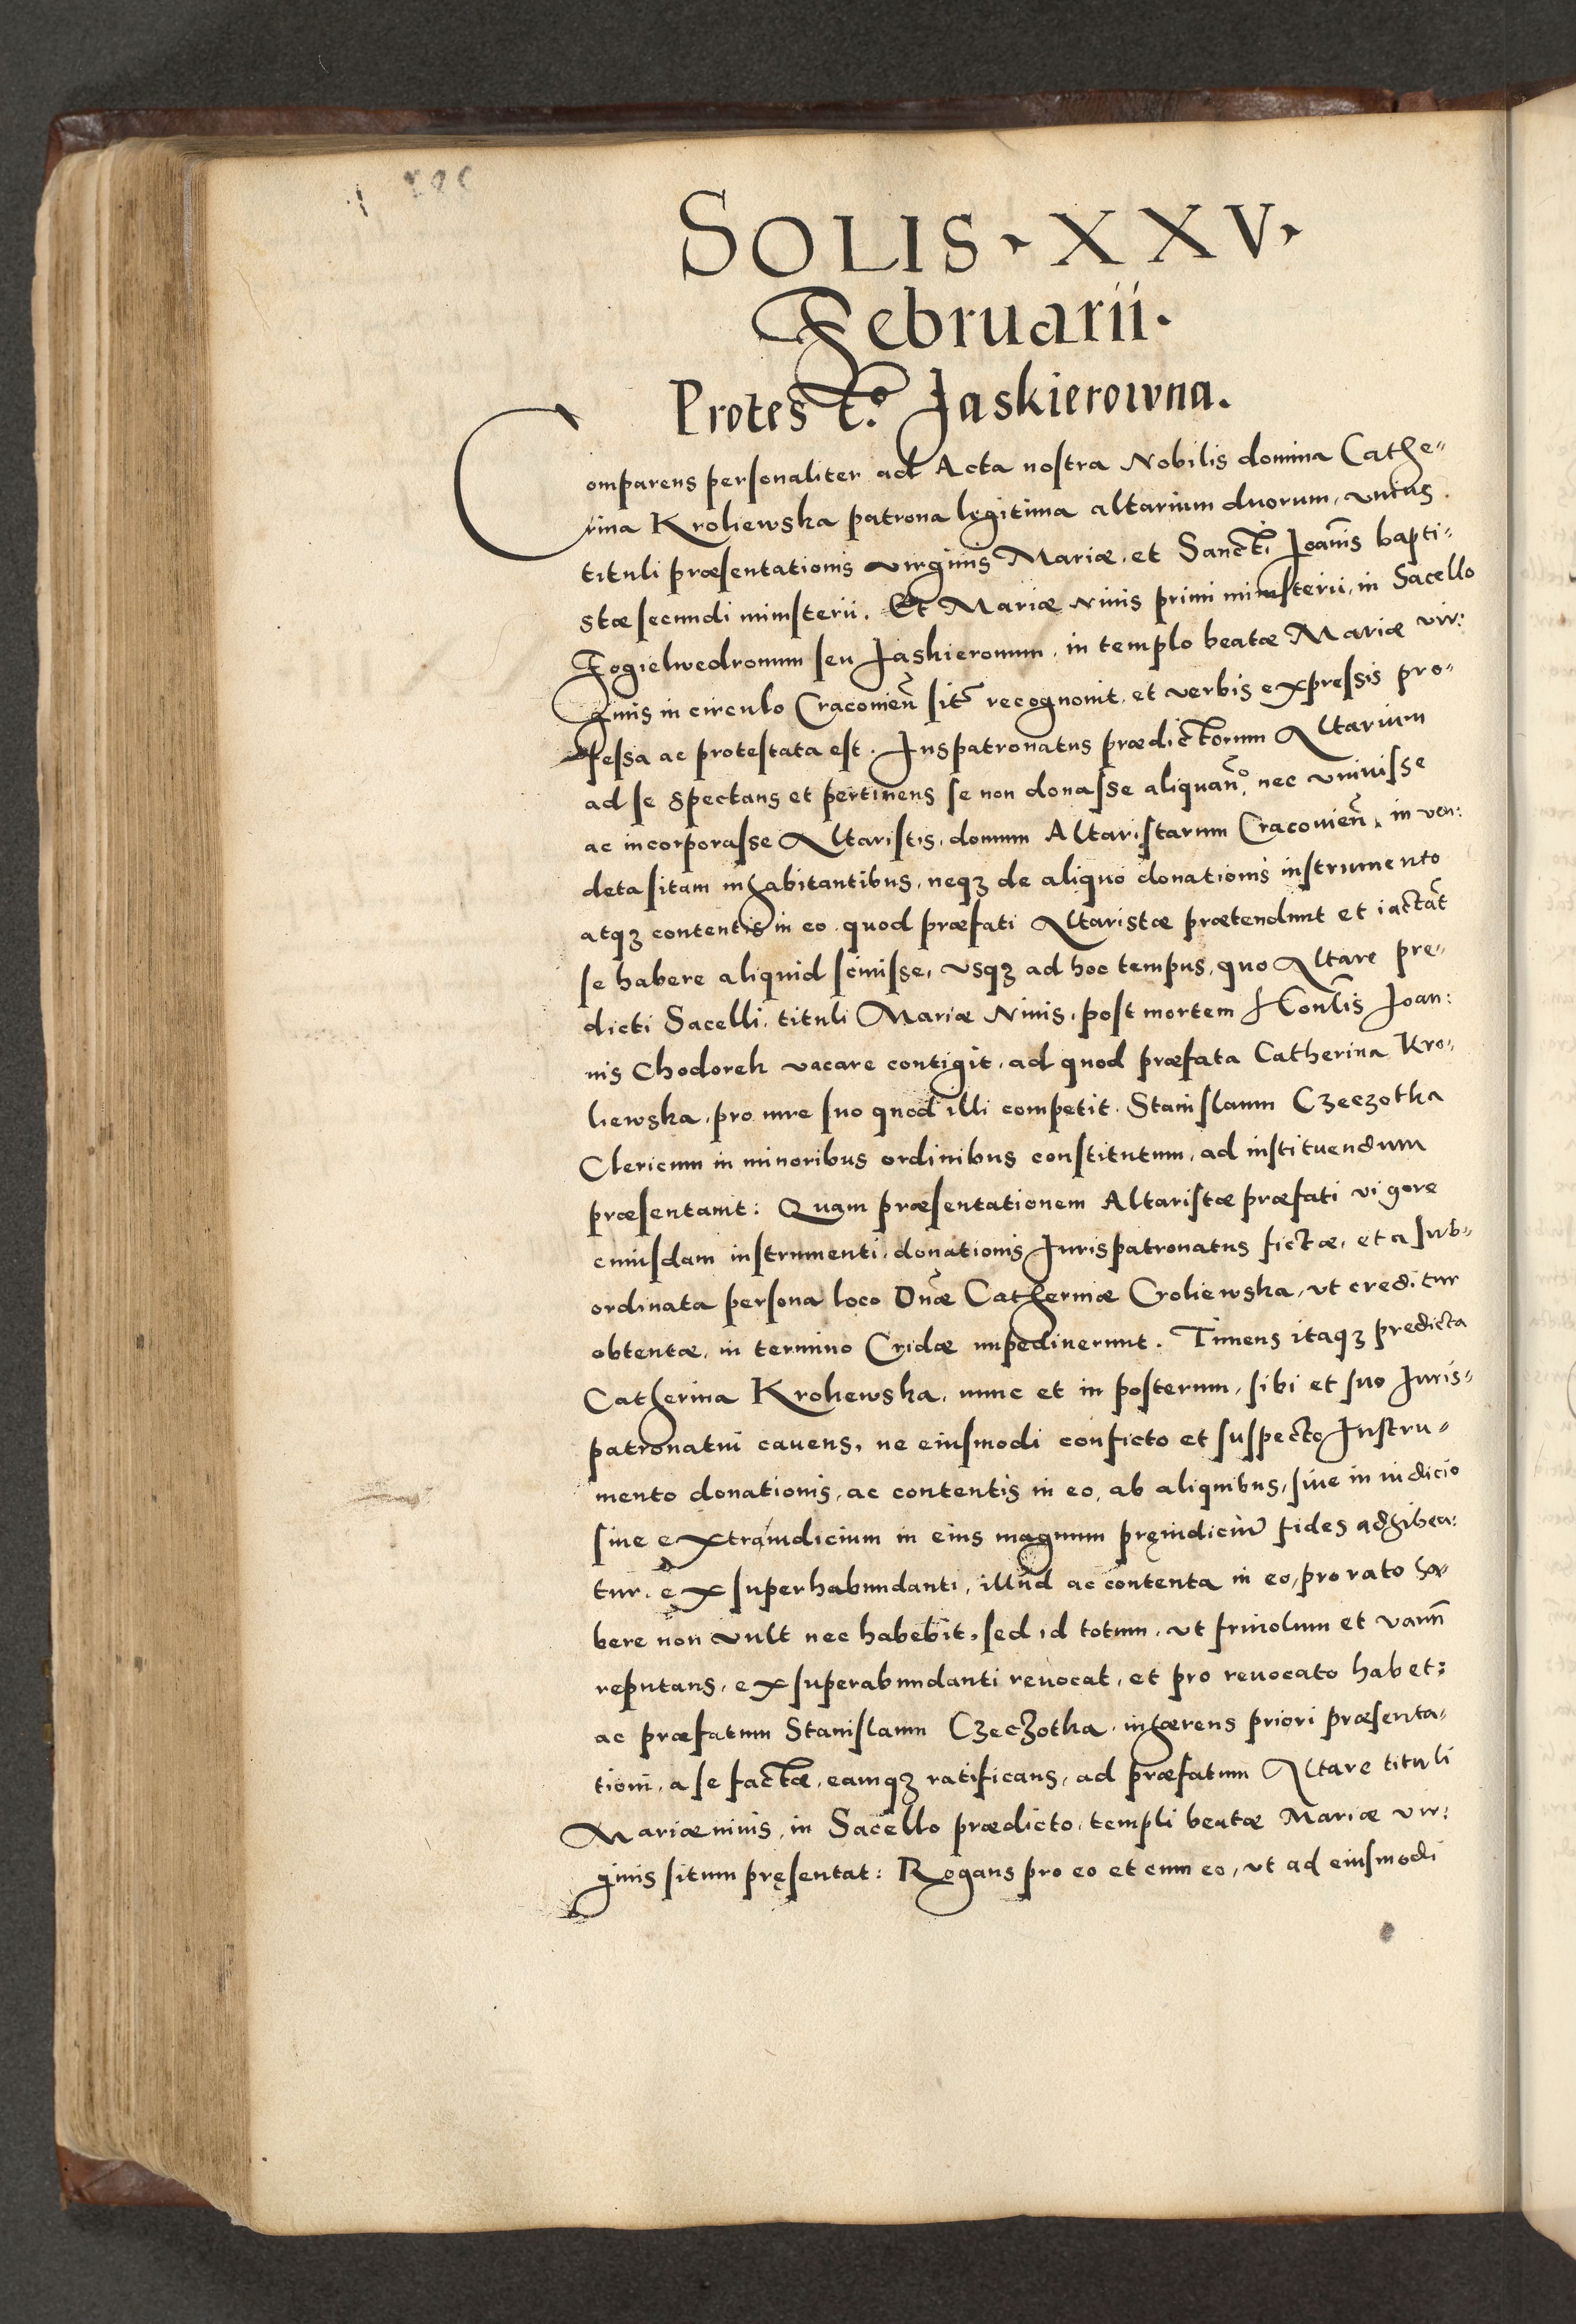 SOLIS · XXV ·
Februarii ·
Protest.º Jaskierowna.
Comparens personaliter ad Acta nostra Nobilis domina Cathe-
rina Kroliewska patrona legitima altarium duorum, vnius
tituli præsentationis virginis Mariæ, et Sancti Joan̄is bapti-
stæ secundi ministerii. Et Mariæ Niuis primi ministerii, in Sacello
Fogielwedronum seu Jaskieronum, in templo beatæ Mariæ vir:
ginis in circulo Cracouien̄ sit̄ recognouit, et verbis expressis pro-
fessa ac protestata est. Juspatronatus prædictorum Altarium
ad se spectans et pertinens se non donasse aliquan̄º, nec vniuisse
ac incorporasse Altaristis, domum Altaristarum Cracouien̄, in ven:
deta sitam inhabitantibus, neqꝫ de aliquo donationis instrumento
atqꝫ contentis in eo quod præfati Altaristæ prætendunt et iactāt
se habere aliquid sciuisse, vsqꝫ ad hoc tempus, quo Altare pre-
dicti Sacelli, tituli Mariæ Niuis, post mortem Hon̄lis Joan:
nis Chodorek vacare contigit, ad quod præfata Catherina Kro-
liewska, pro iure suo quod illi competit, Stanislaum Czeczotka
Clericum in minoribus ordinibus constitutum, ad instituendum
præsentauit: Quam præsentationem Altaristæ præfati vigore
cuiusdam instrumenti, donationis Jurispatronatus fictæ, et a sub-
ordinata persona loco Dn̄æ Catherinæ Croliewska, vt creditur
obtentæ, in termino Cridæ impediuerunt. Timens itaqꝫ predicta
Catherina Kroliewska, nunc et in posterum, sibi et suo Juris-
patronatui cauens, ne eiusmodi conficto et suspecto Instru-
mento donationis, ac contentis in eo, ab aliquibus, siue in iudicio
siue extraiudicium in eius magnum pręiudiciū fides adhibea:
tur, ex superhabundanti, illud ac contenta in eo, pro rato ha-
bere non vult nec habebit, sed id totum, vt friuolum et vanū
reputans, ex superabundanti reuocat, et pro reuocato habet:
ac præfatum Stanislaum Czeczotka, inhærens priori præsenta-
tioni, a se factæ, eamqꝫ ratificans, ad præfatum Altare tituli
Mariæ niuis, in Sacello prædicto, templi beatæ Mariæ vir:
ginis situm pręsentat: Rogans pro eo et cum eo, vt ad eiusmodi